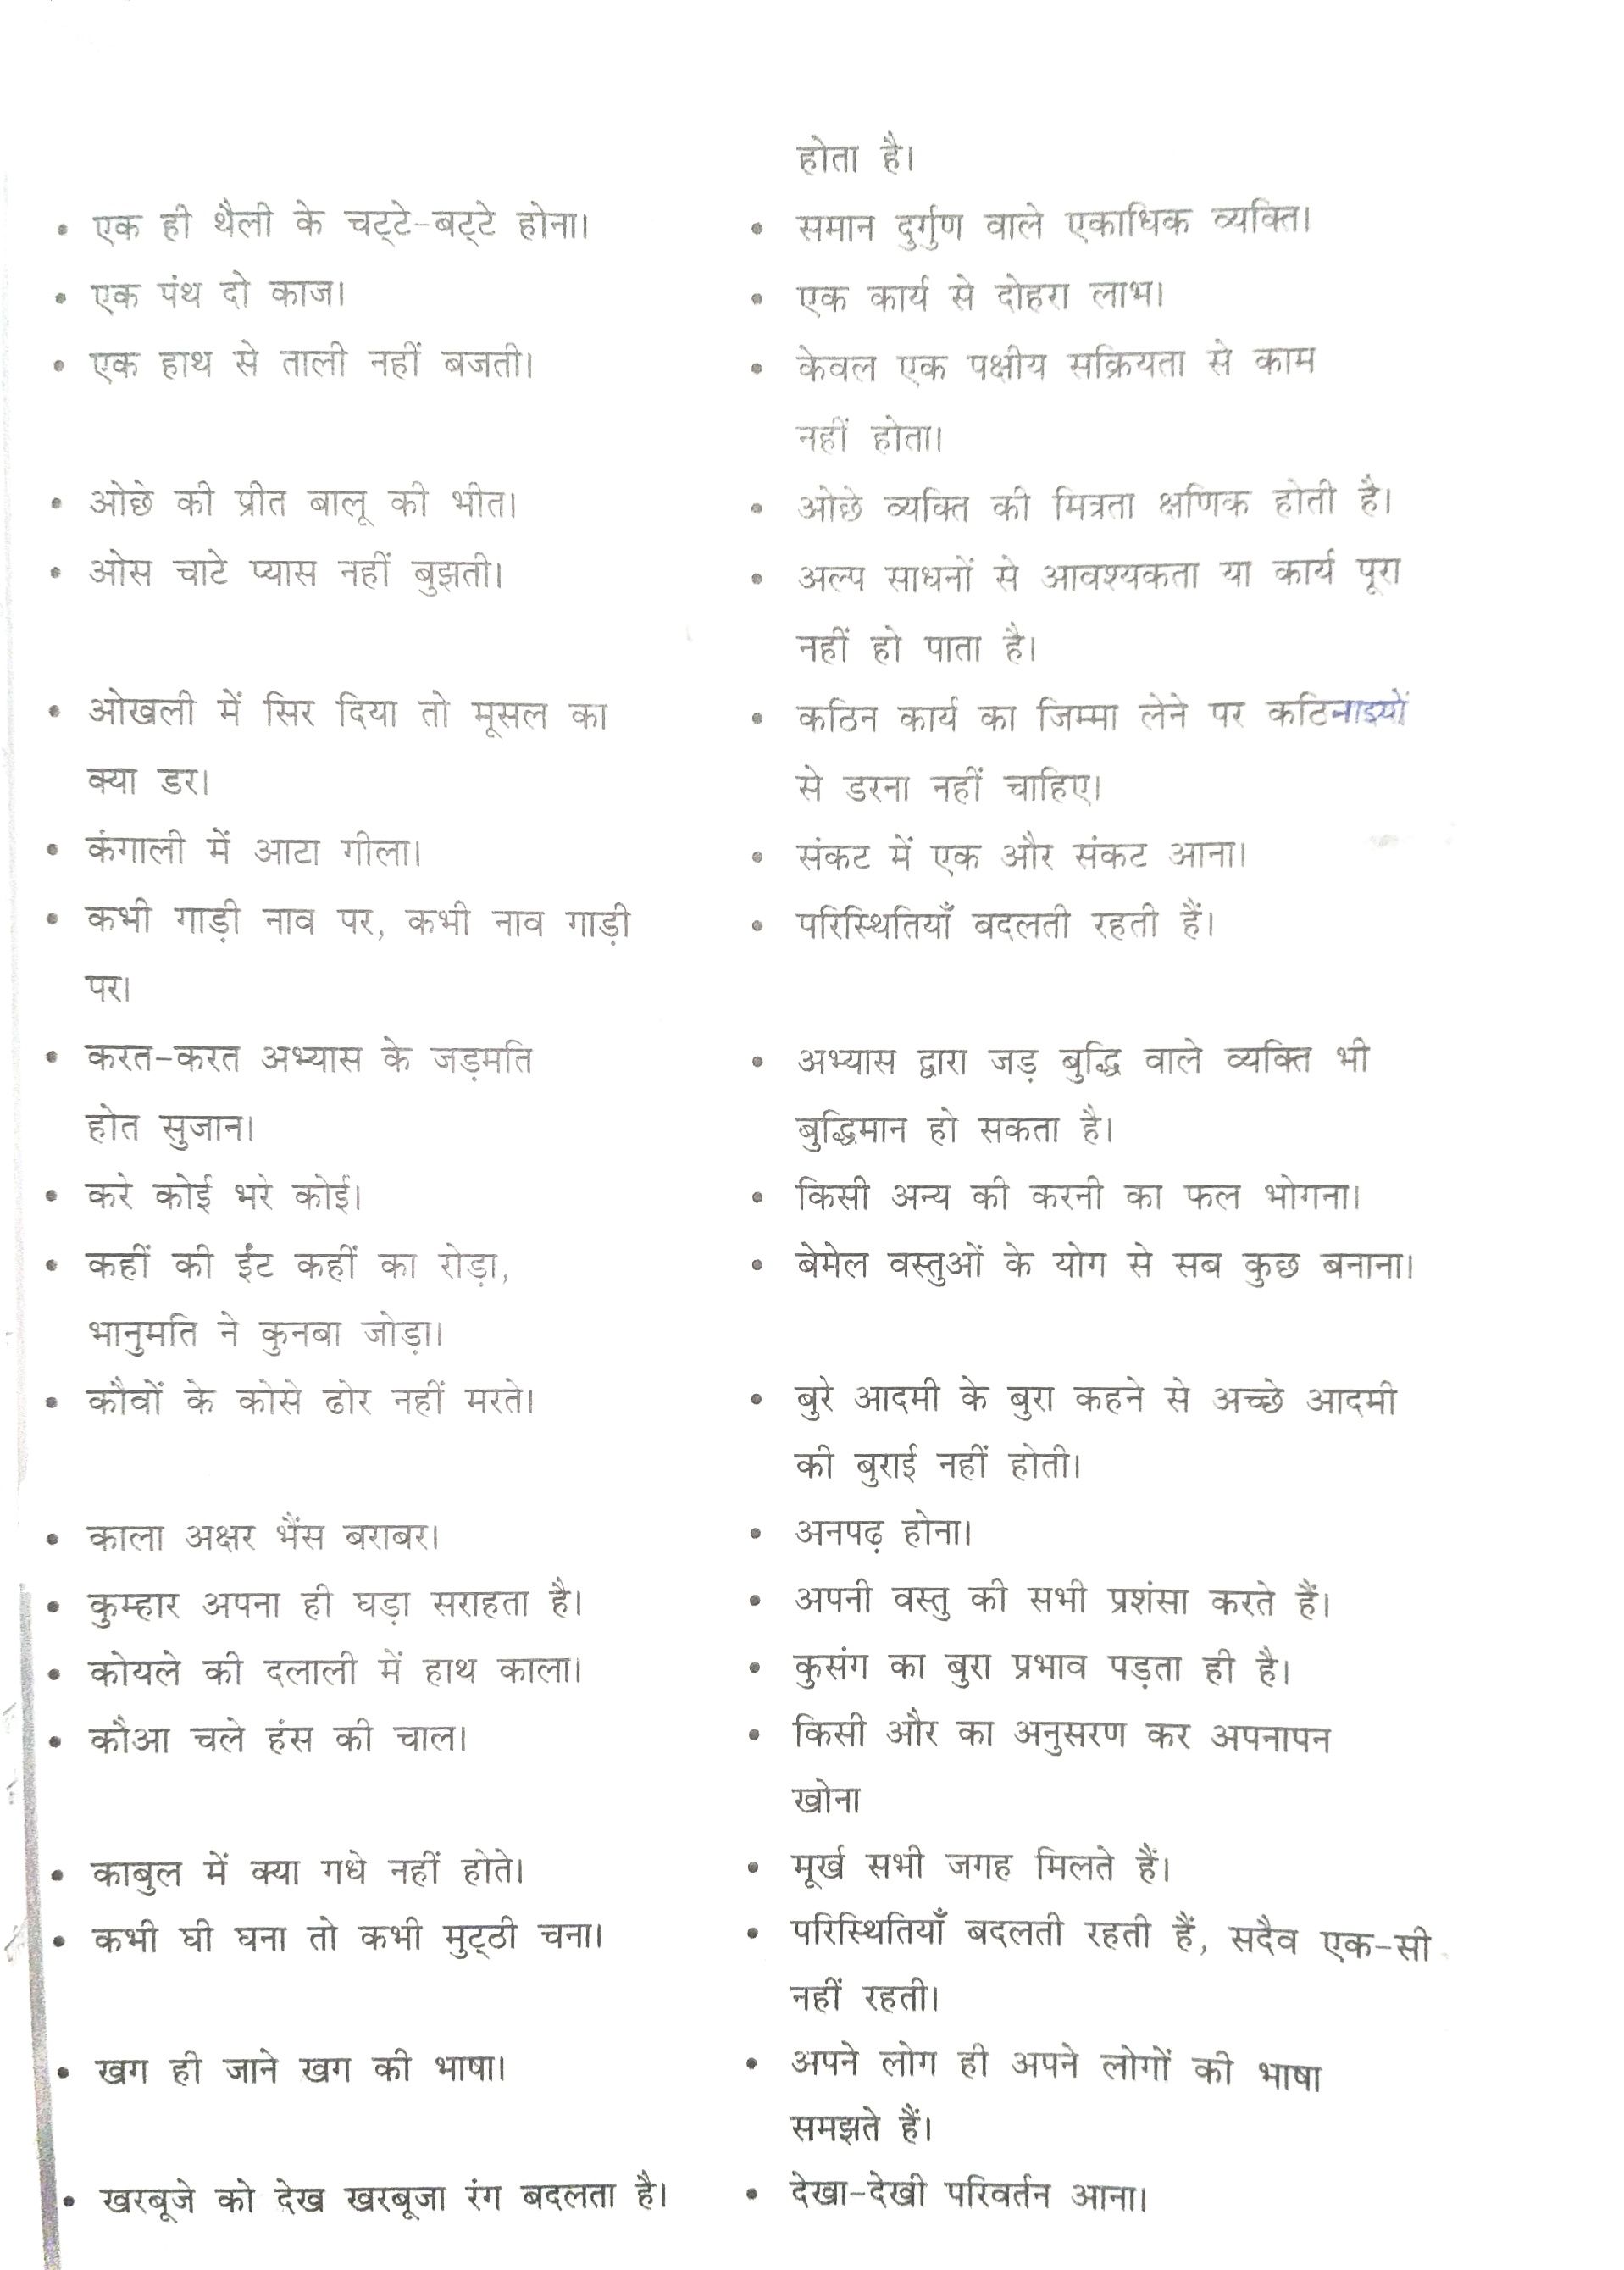 होता है।
• एक ही थैली के चट्टे-बट्टे होना।
• समान दुर्गुण वाले एकाधिक व्यक्ति।
• एक पंथ दो काज।
• एक कार्य से दोहरा लाभ।
• एक हाथ से ताली नहीं बजती।
• केवल एक पक्षीय सक्रियता से काम
नहीं होता।
• ओछे की प्रीत बालू की भीत।
• ओछे व्यक्ति की मित्रता क्षणिक होती है।
• ओस चाटे प्यास नहीं बुझती।
• अल्प साधनों से आवश्यकता या कार्य पूरा
नहीं हो पाता है।
• ओखली में सिर दिया तो मूसल का
क्या डर।
• कठिन कार्य का जिम्मा लेने पर कठिनाइयों
से डरना नहीं चाहिए।
• कंगाली में आटा गीला।
• संकट में एक और संकट आना।
• कभी गाड़ी नाव पर, कभी नाव गाड़ी
पर।
• परिस्थितियाँ बदलती रहती हैं।
• करत-करत अभ्यास के जड़मति
होत सुजान।
• अभ्यास द्वारा जड़ बुद्धि वाले व्यक्ति भी
बुद्धिमान हो सकता है।
• करे कोई भरे कोई।
• किसी अन्य की करनी का फल भोगना।
• कहीं की ईंट कहीं का रोड़ा,
भानुमति ने कुनबा जोड़ा।
• बेमेल वस्तुओं के योग से सब कुछ बनाना।
• कौवों के कोसे ढोर नहीं मरते।
• बुरे आदमी के बुरा कहने से अच्छे आदमी
की बुराई नहीं होती।
• काला अक्षर भैंस बराबर।
• अनपढ़ होना।
• कुम्हार अपना ही घड़ा सराहता है।
• अपनी वस्तु की सभी प्रशंसा करते हैं।
• कोयले की दलाली में हाथ काला।
• कुसंग का बुरा प्रभाव पड़ता ही है।
• कौआ चले हंस की चाल।
• किसी और का अनुसरण कर अपनापन
खोना
• काबुल में क्या गधे नहीं होते।
• मूर्ख सभी जगह मिलते हैं।
• कभी घी घना तो कभी मुट्ठी चना।
• परिस्थितियाँ बदलती रहती हैं, सदैव एक-सी
नहीं रहती।
• खग ही जाने खग की भाषा।
• अपने लोग ही अपने लोगों की भाषा
समझते हैं।
• खरबूजे को देख खरबूजा रंग बदलता है।
• देखा-देखी परिवर्तन आना।